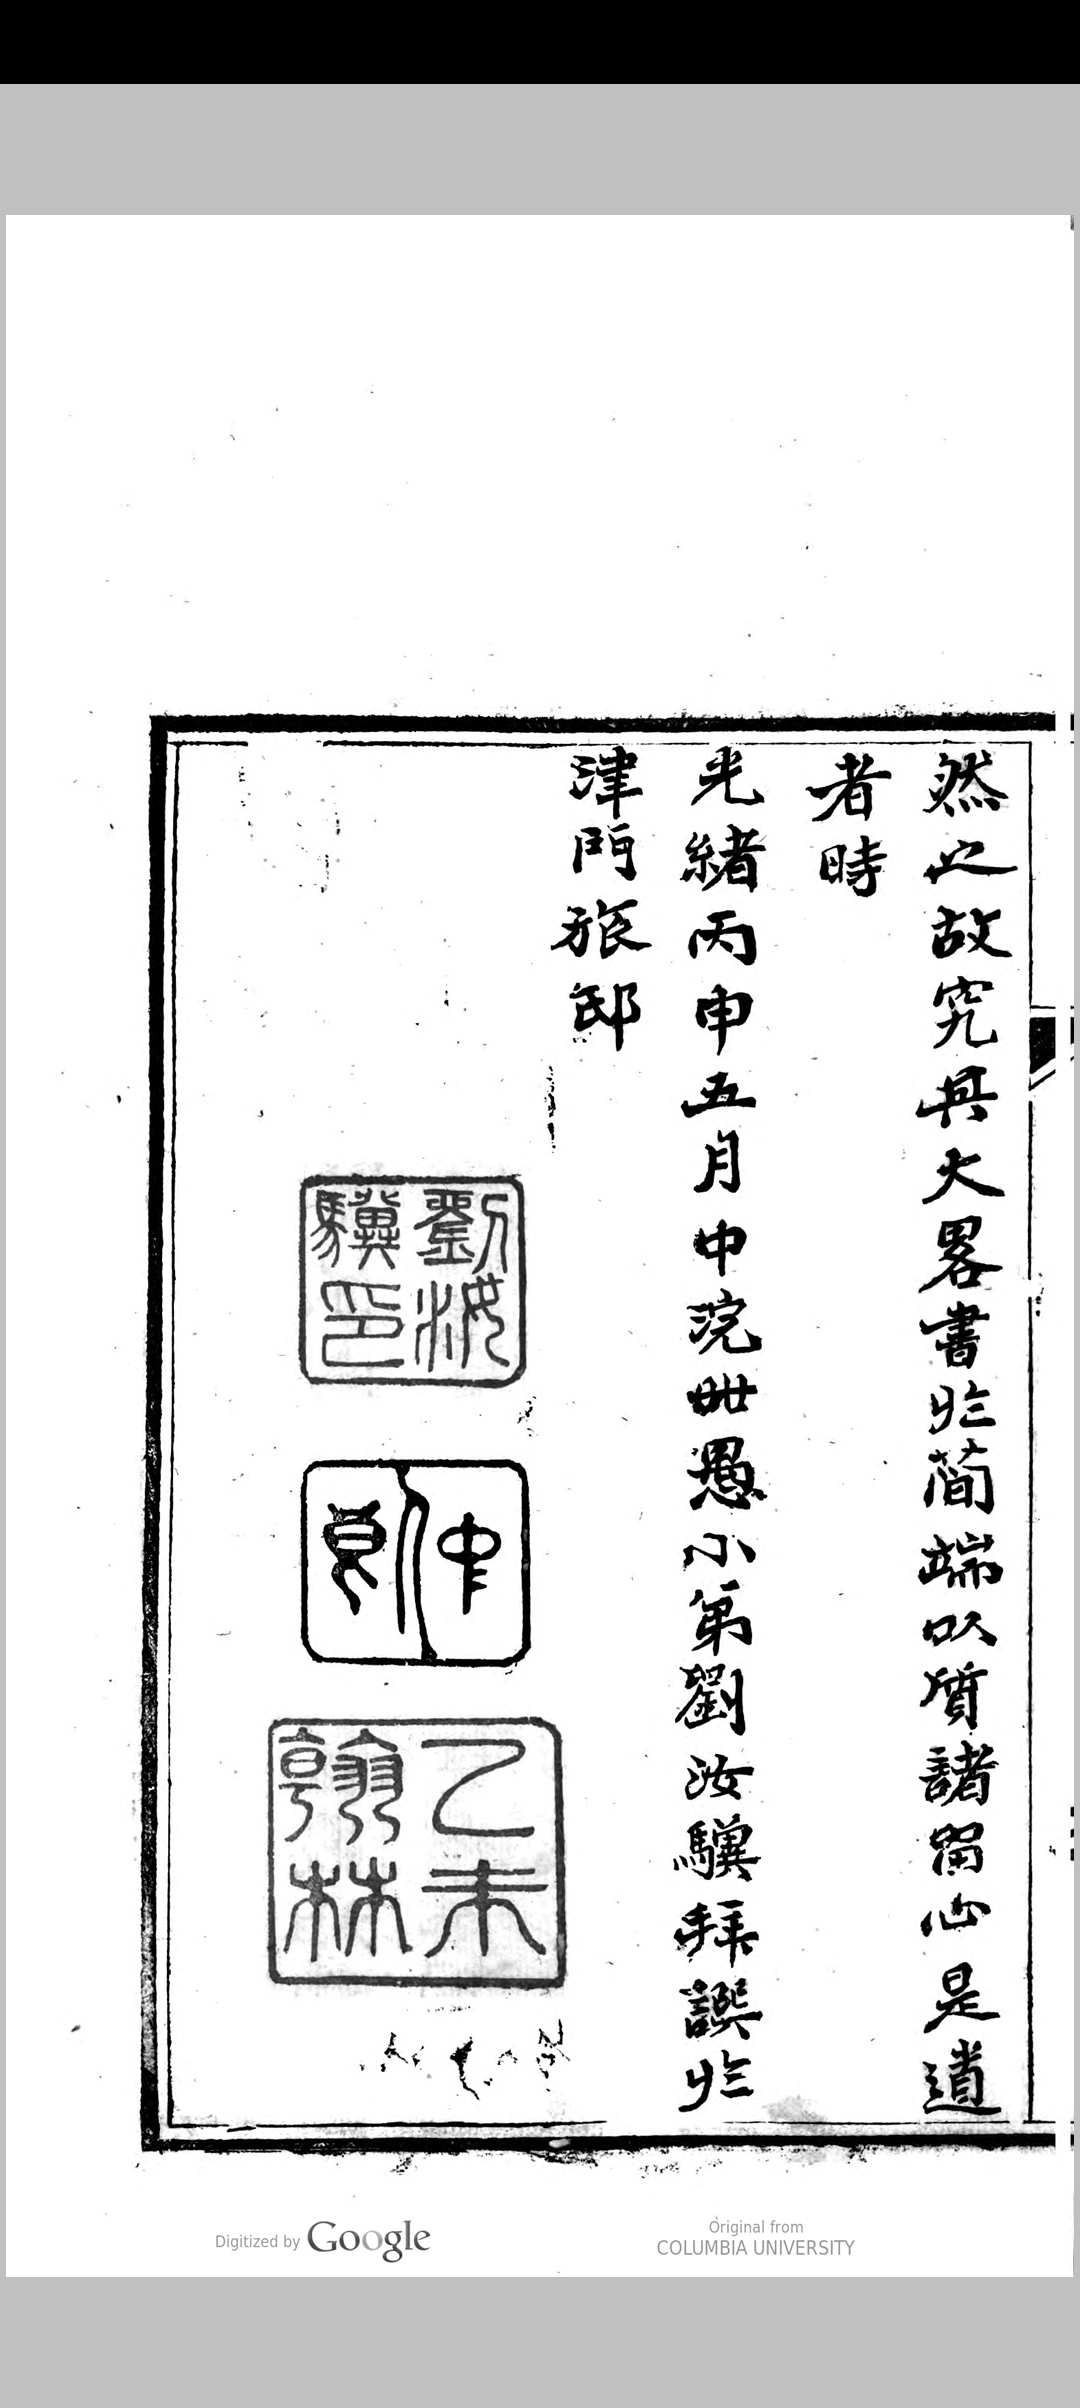 然之故究其大畧書於簡端以質諸畱心是道
者時
光緒丙申五月中浣世愚小弟劉汝驥拜譔於
津門旅邸
劉汝驥印
仲良
乙未翰林
Digitized by Google
Original from
COLUMBIA UNIVERSITY